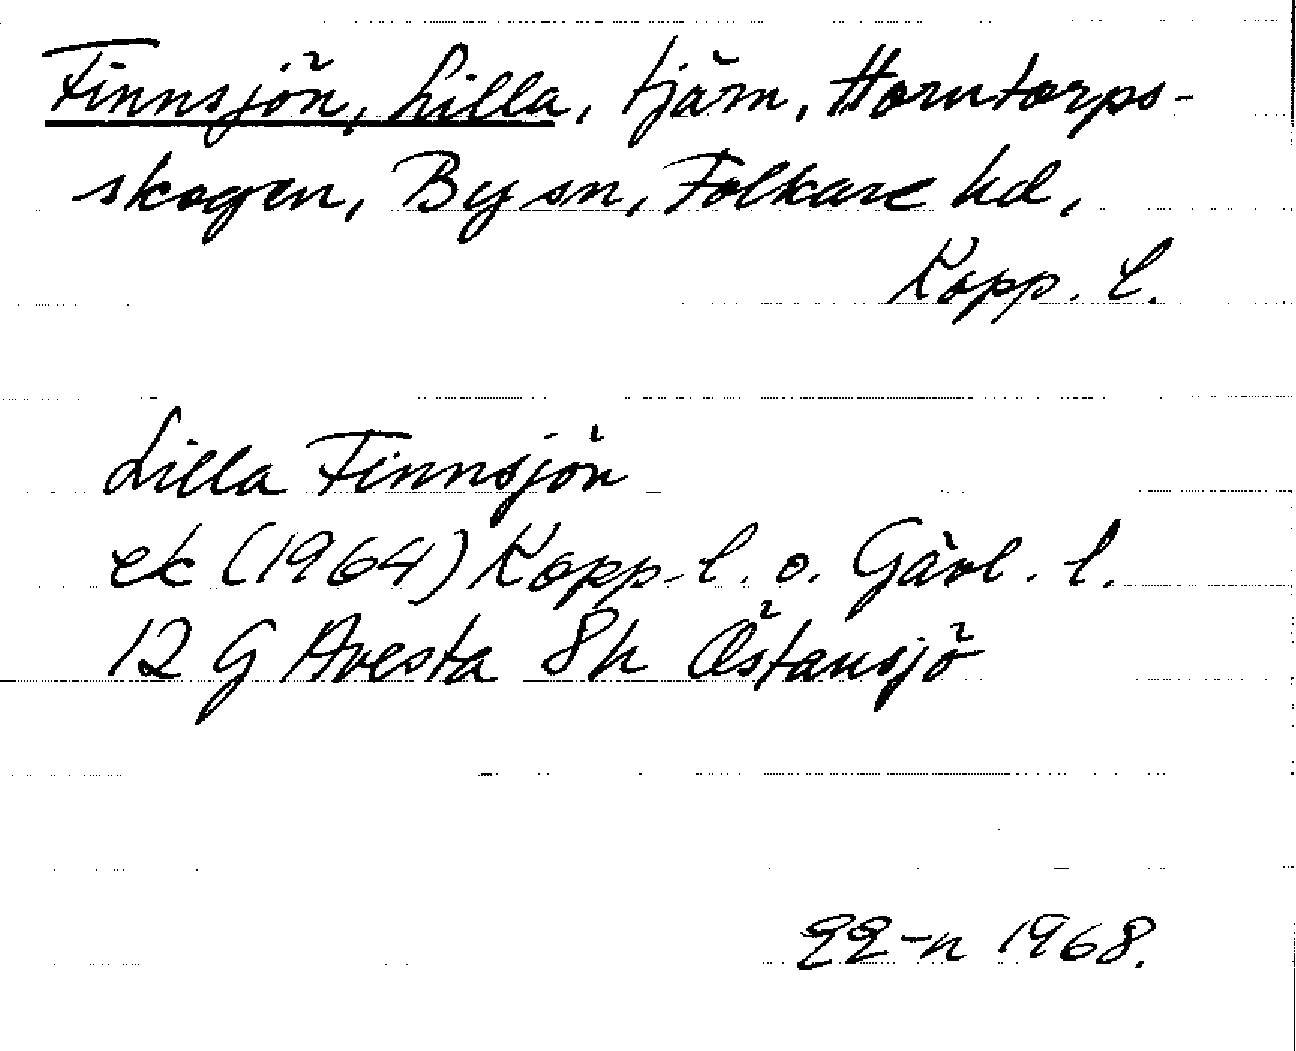 Finnsjön, Lilla, tjärn, Horntorps-
skogen, By sn, Folkare hd,
Kopp. l.
Lilla Finnsjön
ek (1964) Kopp. l. o. Gävl. l.
12 G Avesta 8h Östansjö
EE-n 1968.